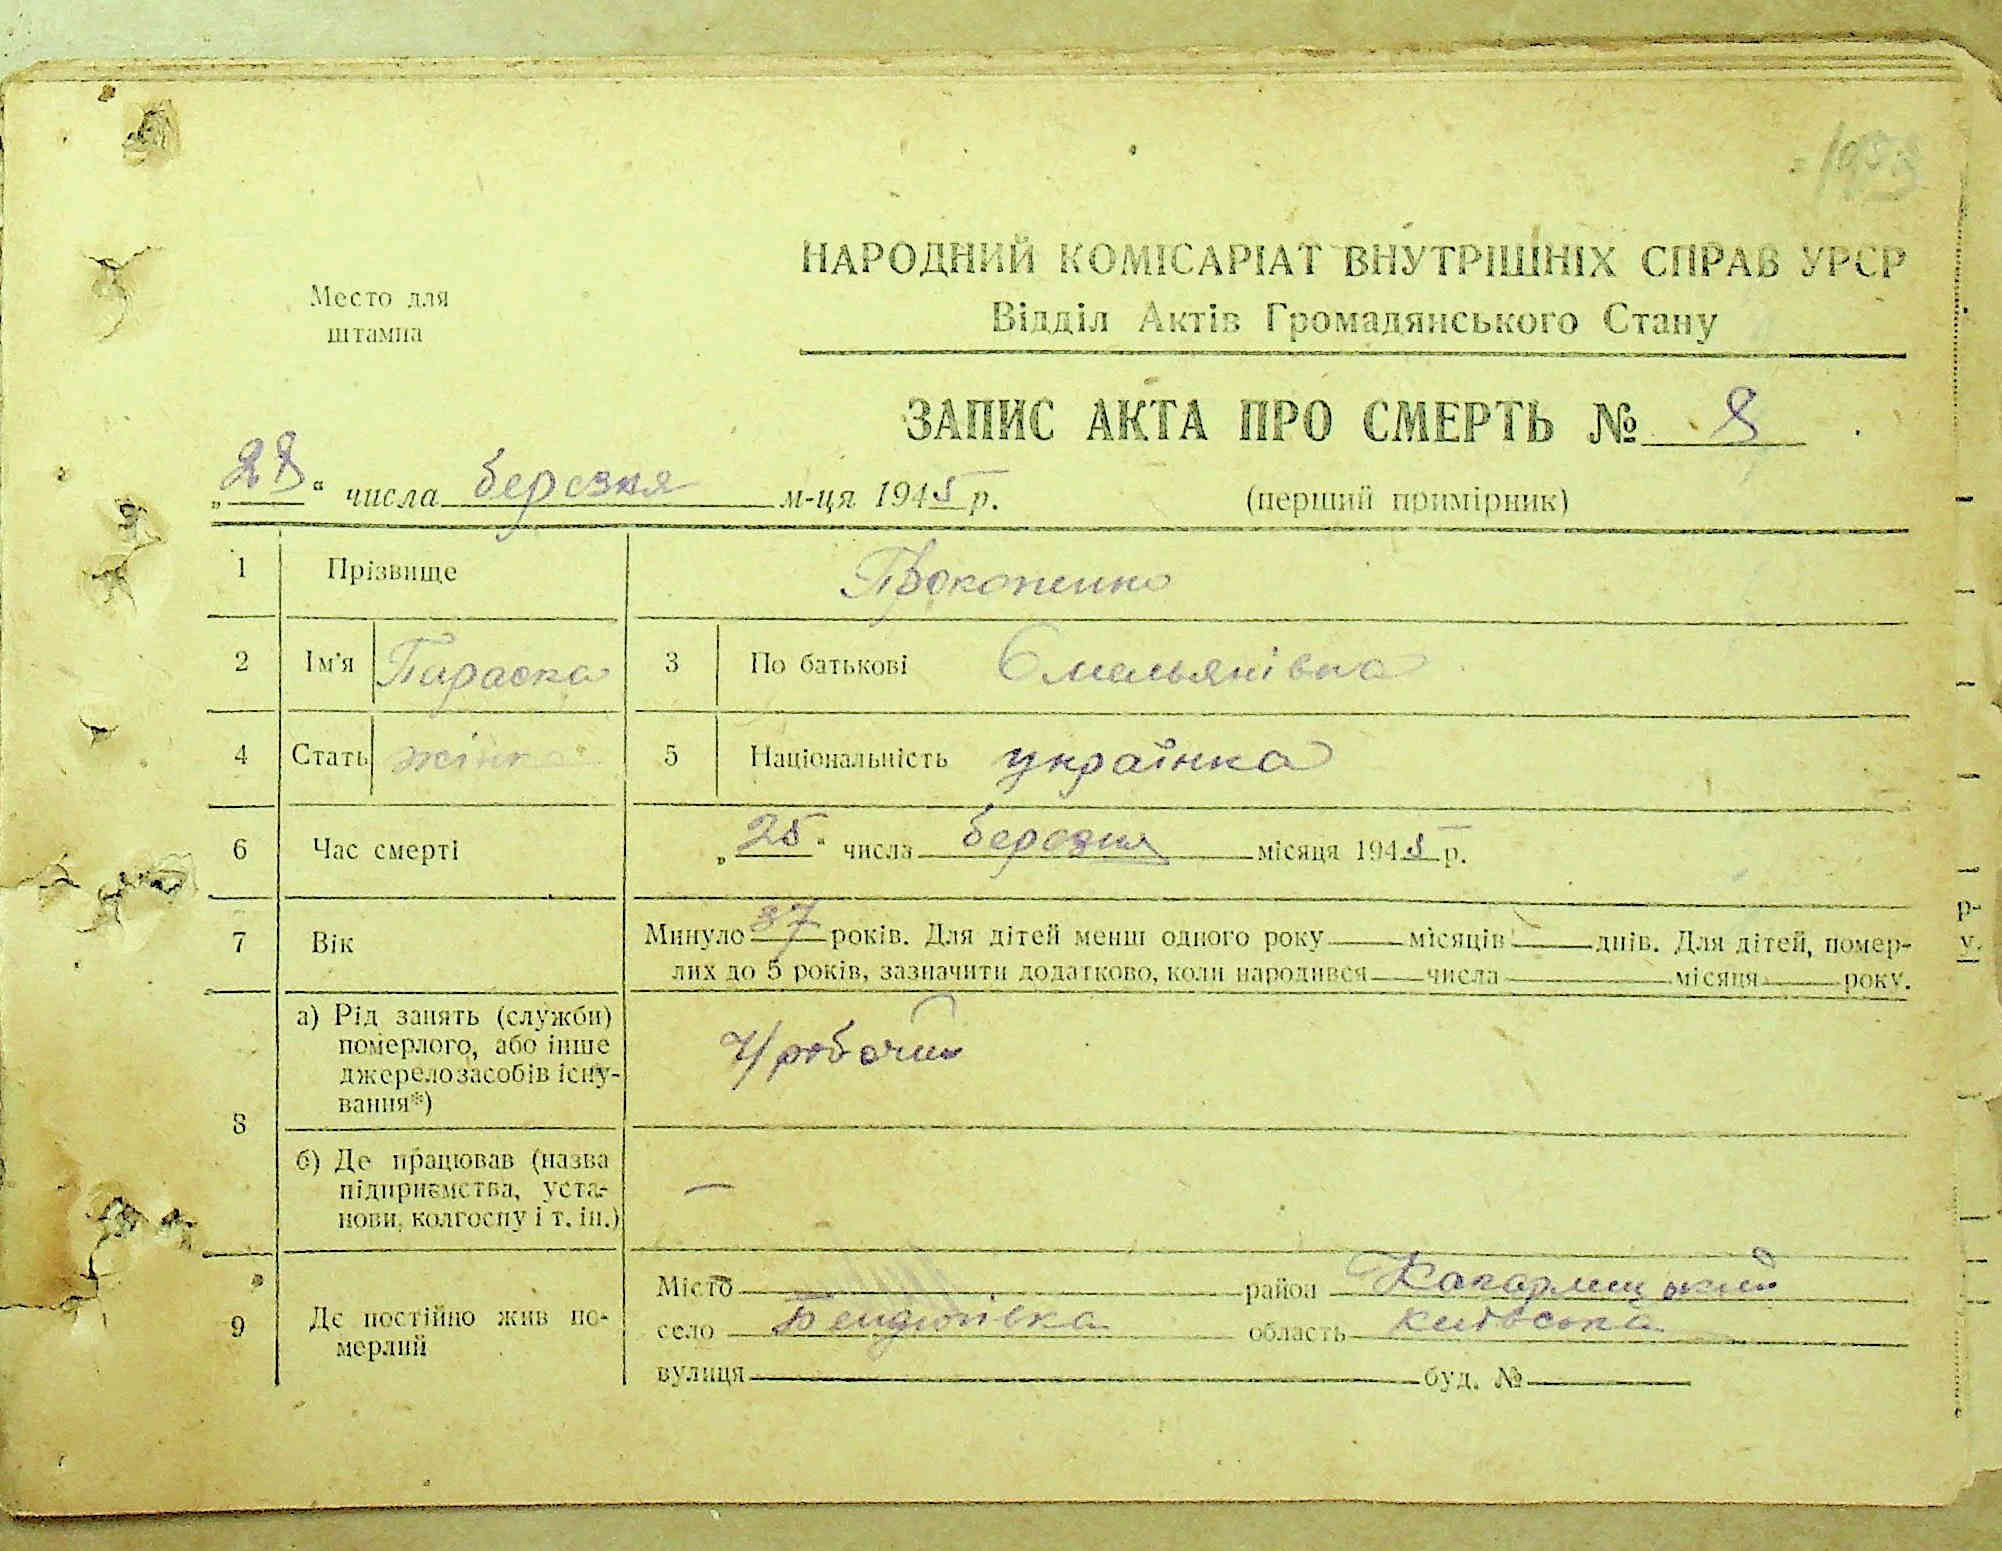 НАРОДНИЙ КОМІСАРІАТ ВНУТРІШНІХ СПРАВ УРСР
Відділ Актів Громадянського Стану
Место для
штампа
ЗАПИС АКТА ПРО СМЕРТЬ № 8
„28“ числа березня м-ця 1945 р.
(перший примірник)
1 Прізвище Прокопенко
2 Ім'я Параска 3 По батькові Омельянівна
4 Стать жінка 5 Національність українка
6 Час смерті „25“ числа березня місяця 1945 р.
7 Вік Минуло 87 років. Для дітей менш одного року місяців днів. Для дітей, помер-
лих до 5 років, зазначити додатково, коли народився числа місяця року.
8 а) Рід занять (служби)
померлого, або інше
джерело засобів існу-
вання*)
ч/робочий
б) Де працював (назва
підприємства, уста-
нови, колгоспу і т. ін.)
—
9 Де постійно жив по-
мерлий
Місто район Кагарлицький
село Бендюгівка область київська
вулиця буд. №